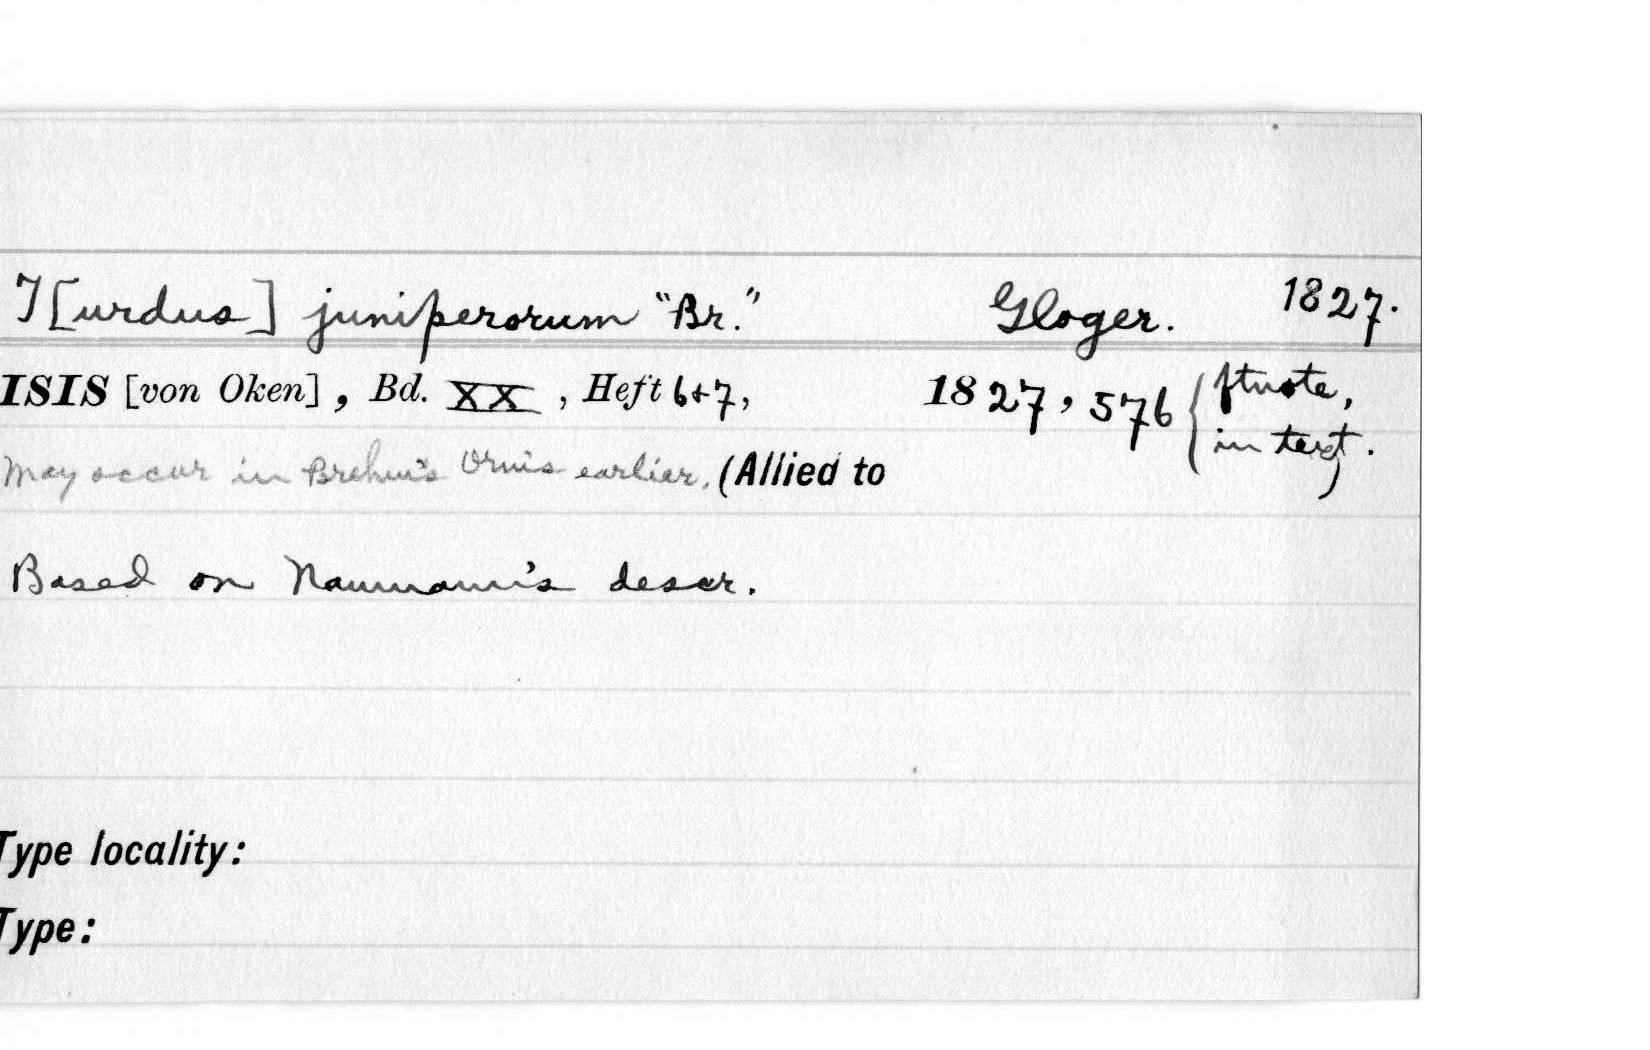 T[urdus] juniperorum "Br." Gloger. 1827.
ISIS [von Oken], Bd. XX, Heft 6+7, 1827, 576 { ftnote,
in text.
May occur in Brehm's Ornis earlier. (Allied to
Based on Naumann's descr.
Type locality:
Type: